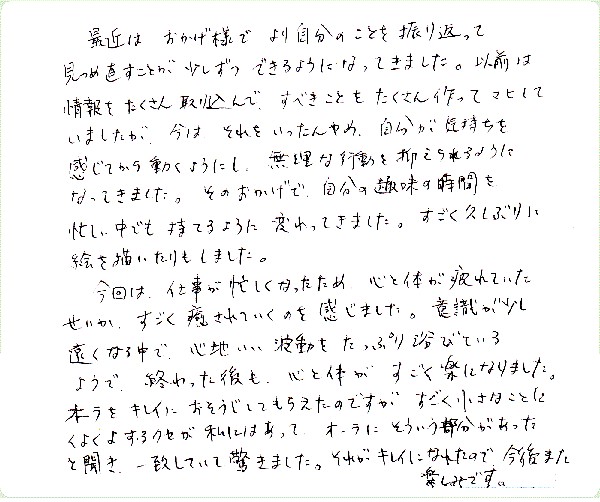 最近は おかげ様で より自分のことを振り返って
見つめ直すことが少しずつできるようになってきました。以前は
情報をたくさん取り込んで、すべきことをたくさん作ってマヒして
いましたが、今は それをいったんやめ、自分が気持ちを
感じてから動くようにし、無理な行動を抑えられるように
なってきました。そのおかげで、自分の趣味の時間を
忙しい中でも持てるように変わってきました。すごく久しぶりに
絵を描いたりもしました。
今回は、仕事が忙しくなったため、心と体が疲れていた
せいか、すごく癒されていくのを感じました。意識が少し
遠くなる中で、心地いい波動をたっぷり浴びている
ようで、終わった後も、心と体がすごく楽になりました。
オーラをキレイにおそうじしてもらえたのですが すごく小さなことに
くよくよするクセが私にはあって、オーラにそういう部分があった
と聞き、一致していて驚きました。それがキレイになれたので今後また
楽しみです。